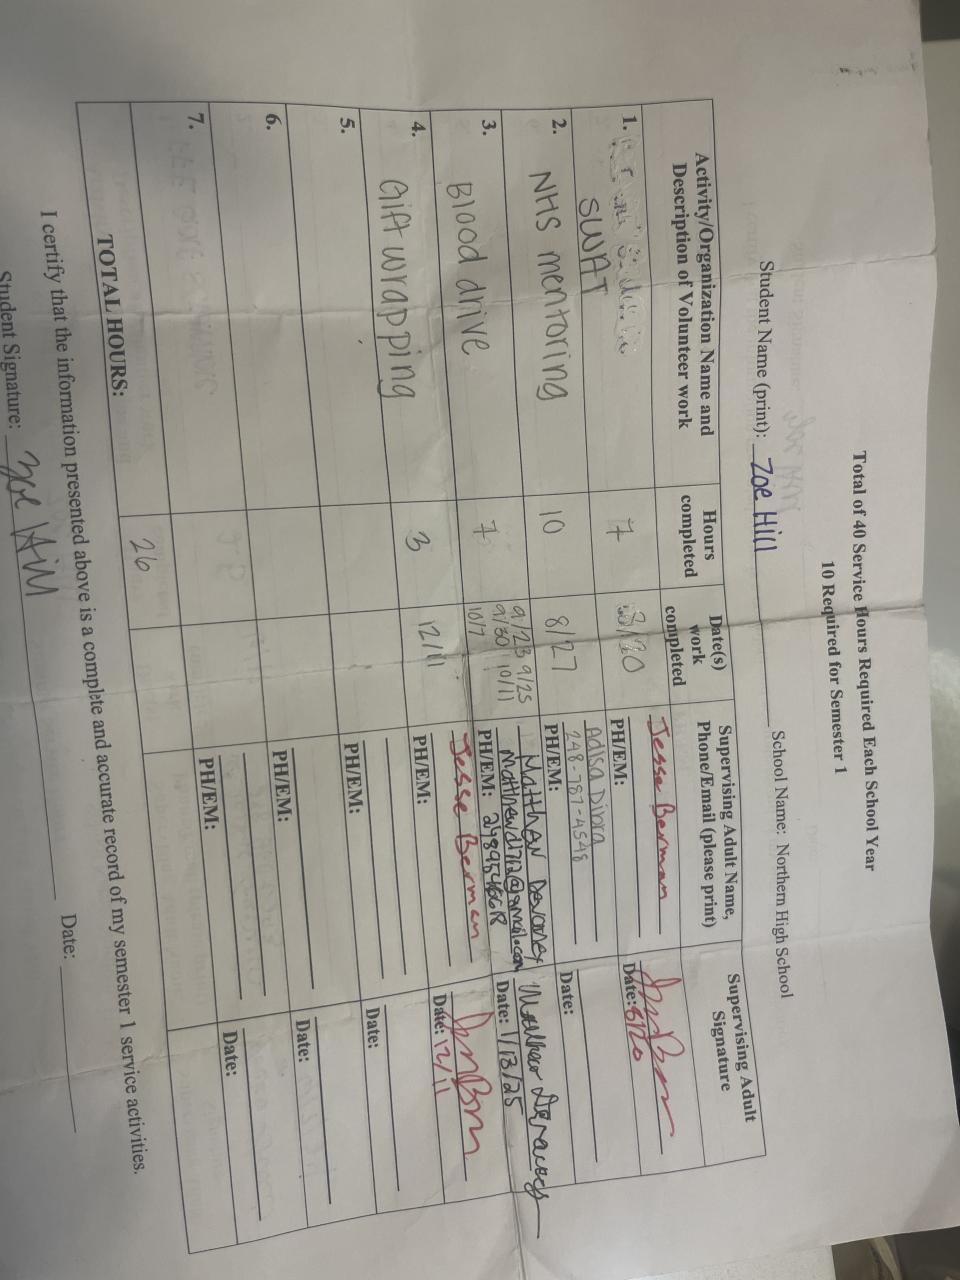 Total of 40 Service Hours Required Each School Year
10 Required for Semester 1
Student Name (print): Zoe Hill School Name: Northern High School
Activity/Organization Name and Description of Volunteer work
Hours completed
Date(s) work completed
Supervising Adult Name, Phone/Email (please print)
Supervising Adult Signature
1. SWAT
7
8/20
Jesse Berman
PH/EM:
Date: 8/20
2. NHS mentoring
10
8/27
Adisa Dibra
248-787-4548
PH/EM:
Date:
3. Blood drive
7
9/23 9/25
9/30 10/11
10/7
Matthew Devaney
PH/EM:
Matthew Devaney
Date: 1/13/25
4. Gift wrapping
3
12/11
Jesse Berman
PH/EM:
Date: 12/11
5.
PH/EM:
Date:
6.
PH/EM:
Date:
7.
PH/EM:
Date:
TOTAL HOURS:
26
I certify that the information presented above is a complete and accurate record of my semester 1 service activities.
Student Signature: Zoe Hill Date: